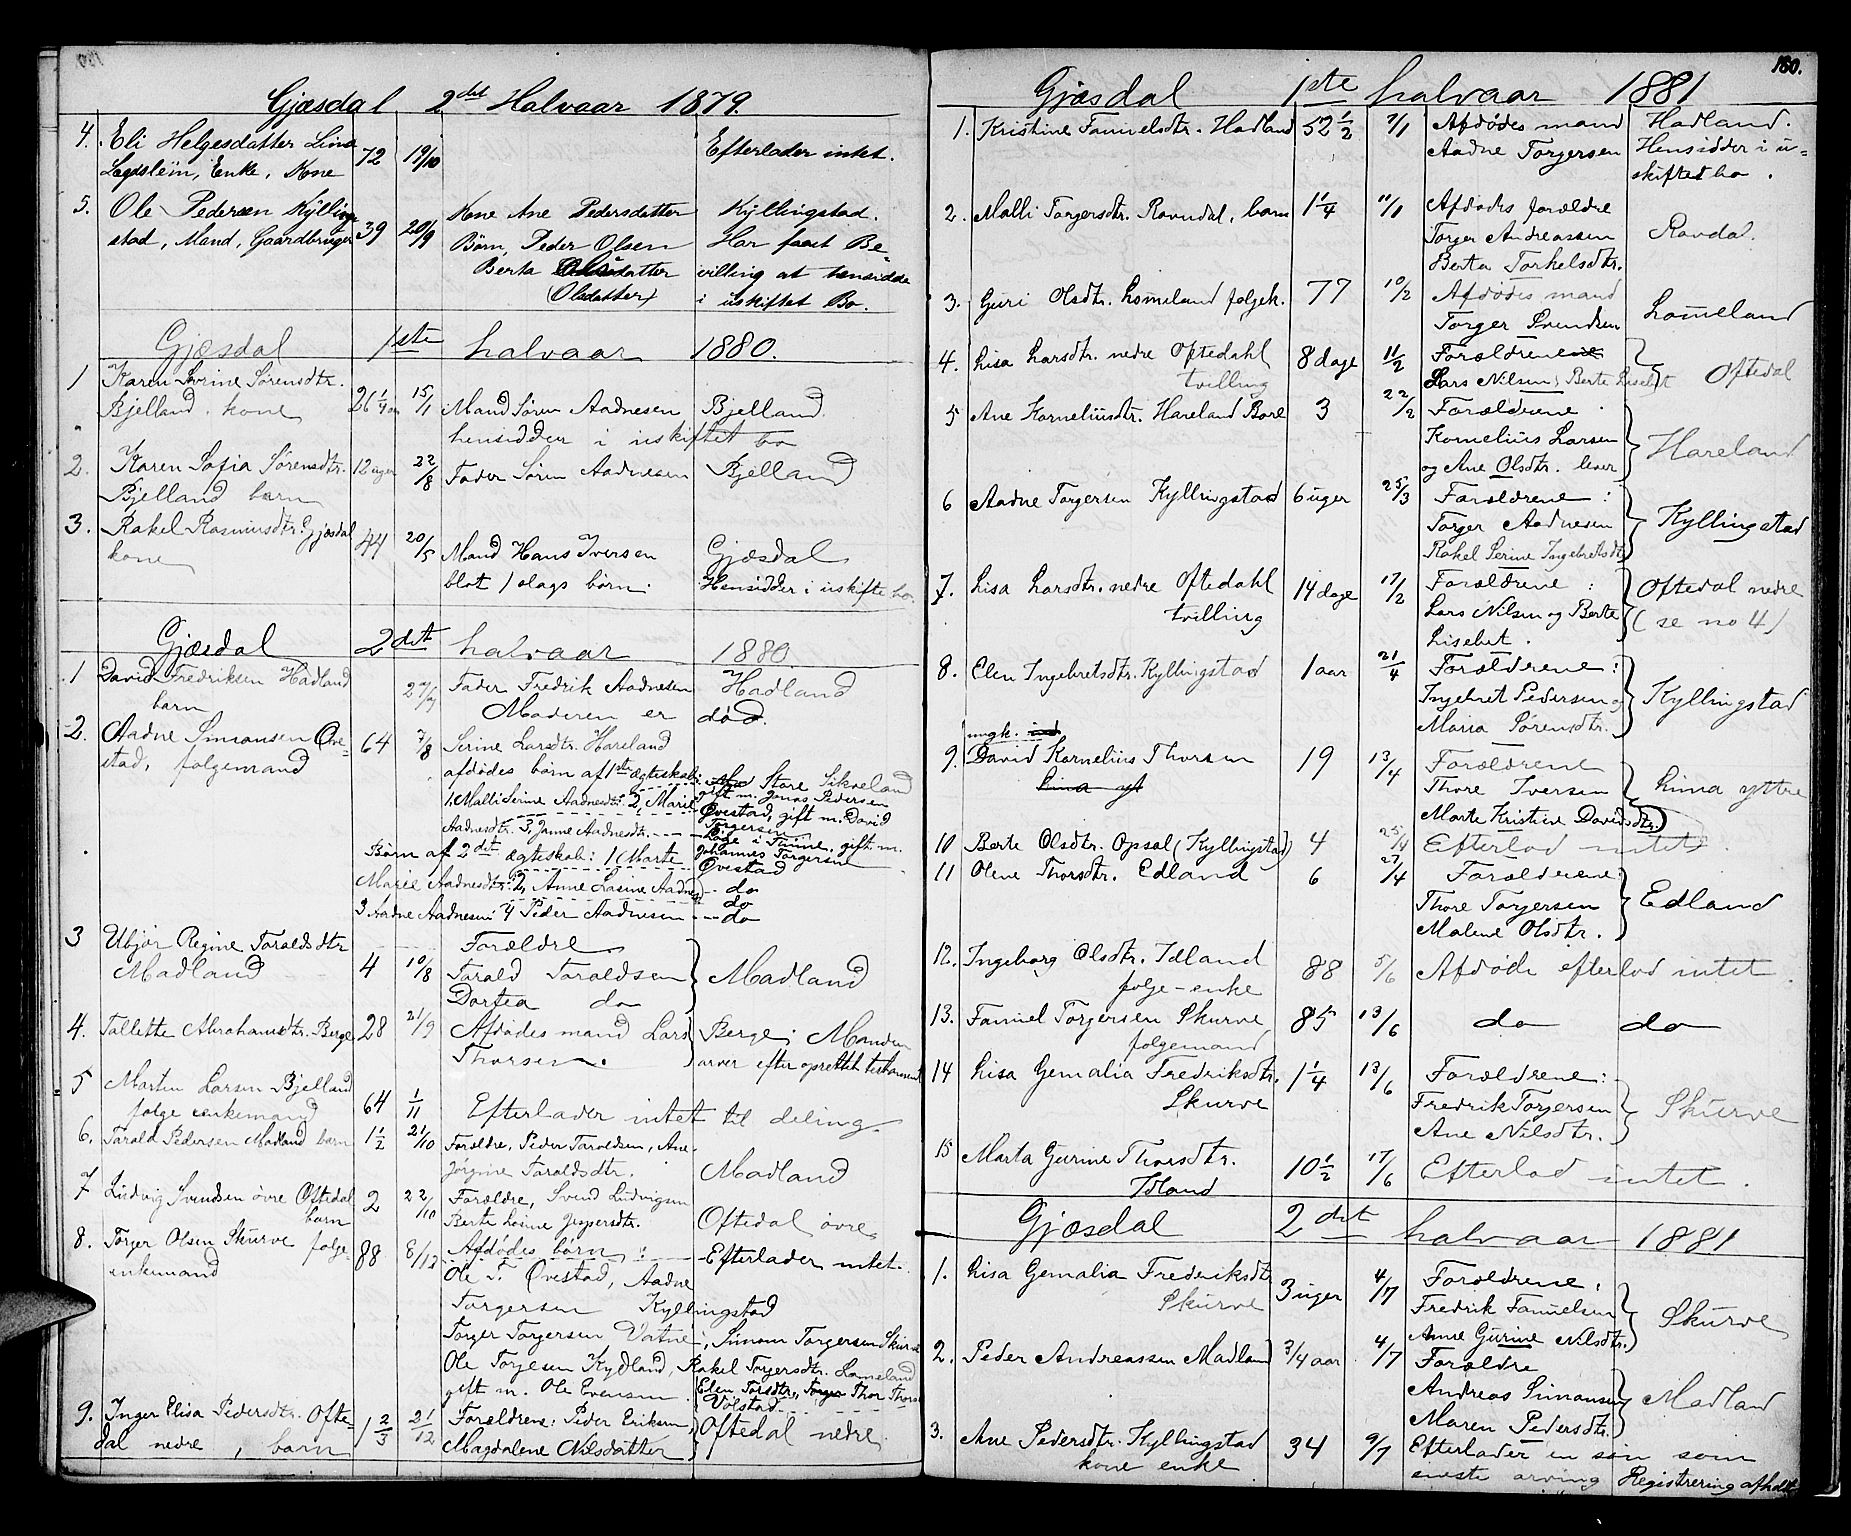 Gjæsdal 2det Halvaar 1879.
4. Eli Helgesdatter Lima 72 19/10 Efterlader intet.
Enke, Kone
5. Ole Pedersen Kylling 39 20/9 Kone Ane Pedersdatter Kyllingstad.
stad, Mand, Gaardbruger Børn, Peder Olsen Har faaet Be-
Berta Olsdatter villing at hensidde
(Olsdatter) i uskiftet Bo.
Gjæsdal 1ste halvaar 1880.
1 Karen Serine Sørensdtr. 26 1/4 aar 15/1 Mand Søren Aadnesen Bjelland
Bjelland. kone hensidder i uskiftet bo
2. Karen Sofia Sørensdtr. 12 uger 22/8 Fader Søren Aadnesen Bjelland
Bjelland barn
3. Rakel Rasmusdtr. Gjæsdal 44 20/5 Mand Hans Iversen Gjæsdal
kone blot 1 olags børn. Hensidder i uskifte bo.
Gjæsdal 2det halvaar 1880
1 David Fredriksen Hadland Fader Fredrik Aadnesen Hadland
barn Moderen er død.
2. Aadne Simonsen Øve- 64 7/8 Serine Larsdtr. Hareland
stad, folgemand afdødes børn af 1ste ægteskab: Store Sikveland
1. Malli Serine Aadnesdtr. 2, Marie gift m. Jonas Pedersen
Øvestad, gift m. David
Aadnesdtr. 3, Janne Aadnesdtr. Torgersen
Lige i Time, gift m.
Børn af 2det ægteskab: 1 (Marte Johannes Torgersen
Øvestad
Marie Aadnesdtr. 2, Anne Lasine Aadnes) do
3. Aadne Aadnesen 4 Peder Aadnesen do
3 Ubjør Regine Taraldsdtr 4 10/8 Forældre
Madland Tarald Taraldsen Madland
Dortea do
4. Tallette Abrahamsdtr. Berge 28 21/9 Afdødes mand Lars Berge; Manden
Thorsen. arver efter oprettet testament
5 Marten Larsen Bjelland 64 1/11 Efterlader intet til deling.
folge enkemand
6. Tarald Pedersen Madland barn 1 1/2 21/10 Forældre, Peder Taraldsen, Ane
Jørgine Taraldsdtr. Madland
7 Ludvig Svendsen øvre Oftedal 2 22/10 Forældre, Svend Ludvigsen
barn Berte Jespersdtr. Oftedal øvre
8. Torger Olsen Skurve folge 88 8/12 Afdødes børn: Efterlader intet.
enkemand Ole T. Øvestad, Aadne
Torgersen Kyllingstad
Torger Torgersen Vatne, Simon Torgersen Skurve
Ole Torgesen Kydland, Rakel Torgersdtr. Lomeland
gift m. Ole Evensen Elen Torsdtr., Torger Thor Thors
Volstad
9. Inger Elisa Pedersdtr. Ofte- 1 2/3 21/12 Forældrene: Peder Eriksen Oftedal nedre
dal nedre, barn Magdalene Nilsdatter
180.
Gjæsdal 1ste halvaar 1881
1. Kristine Tønnelsdtr. Hadland 52 1/2 7/1 Afdødes mand Hadland.
Aadne Torgersen Hensidder i u-
skiftet bo.
2. Malli Torgersdtr. Ravndal, barn 1 1/4 11/1 Afdødes forældre
Torger Andreassen Ravdal.
Berta Torkelsdtr.
3. Guri Olsdtr. Lomeland folgek. 77 10/2 Afdødes mand
Torger Svendsen Lomeland
4. Lisa Larsdtr. nedre Oftedahl 8 dage 11/2 Forældrene
tvilling Lars Nilsen, Berte Lisebet Oftedal
5 Ane Korneliusdtr. Hareland Bore 3 22/2 Forældrene
Kornelius Larsen Hareland
og Ane Olsdtr. lever
6 Aadne Torgersen Kyllingstad 6 uger 25/3 Forældrene:
Torger Aadnesen Kyllingstad
Rakel Serine Ingebretsdtr.
7. Lisa Larsdtr. nedre Oftedahl 14 dage 17/2 Forældrene: Oftedal nedre
tvilling Lars Nilsen og Berte (se no 4)
Lisebet.
8. Elen Ingebretsdtr. Kyllingstad 1 aar 21/4 Forældrene:
Ingebret Pedersen og Kyllingstad
Maria Sørensdtr.
ungk.
9. David Kornelius Thorsen 19 13/4 Forældrene
Lima yt Thore Iversen Lima yttre
Marte Kristine Davidsdtr.
10 Berte Olsdtr. Opsal (Kyllingstad) 4 25/4 Efterlod intet.
11 Olene Thorsdtr. Edland 6 27/4 Forældrene:
Thore Torgersen Edland
Malene Olsdtr.
12. Ingeborg Olsdtr. Idland 88 5/6 Afdøde efterlod intet
folge-enke
13. Tønnel Torgersen Skurve 85 13/6 do do
folgemand
14 Lisa Gemalia Fredriksdtr. 1 1/4 13/6 Forældrene:
Skurve Fredrik Torgersen Skurve
Ane Nilsdtr.
15 Marta Gurine Thorsdtr. 10 1/2 17/6 Efterlod intet.
Idland
Gjæsdal 2det halvaar 1881
1. Lisa Gemalia Frederiksdtr 3 uger 4/7 Forældrene:
Skurve Fredrik Tønnelsen Skurve
Anne Gurine Nilsdtr.
2. Peder Andreassen Madland 3/4 aar 4/7 Forældre
Andreas Simonsen Madland
Maren Pedersdtr.
3. Ane Pedersdtr. Kyllingstad 34 9/7 Efterlader en søn som
kone enke eneste arving Registrering afholdt